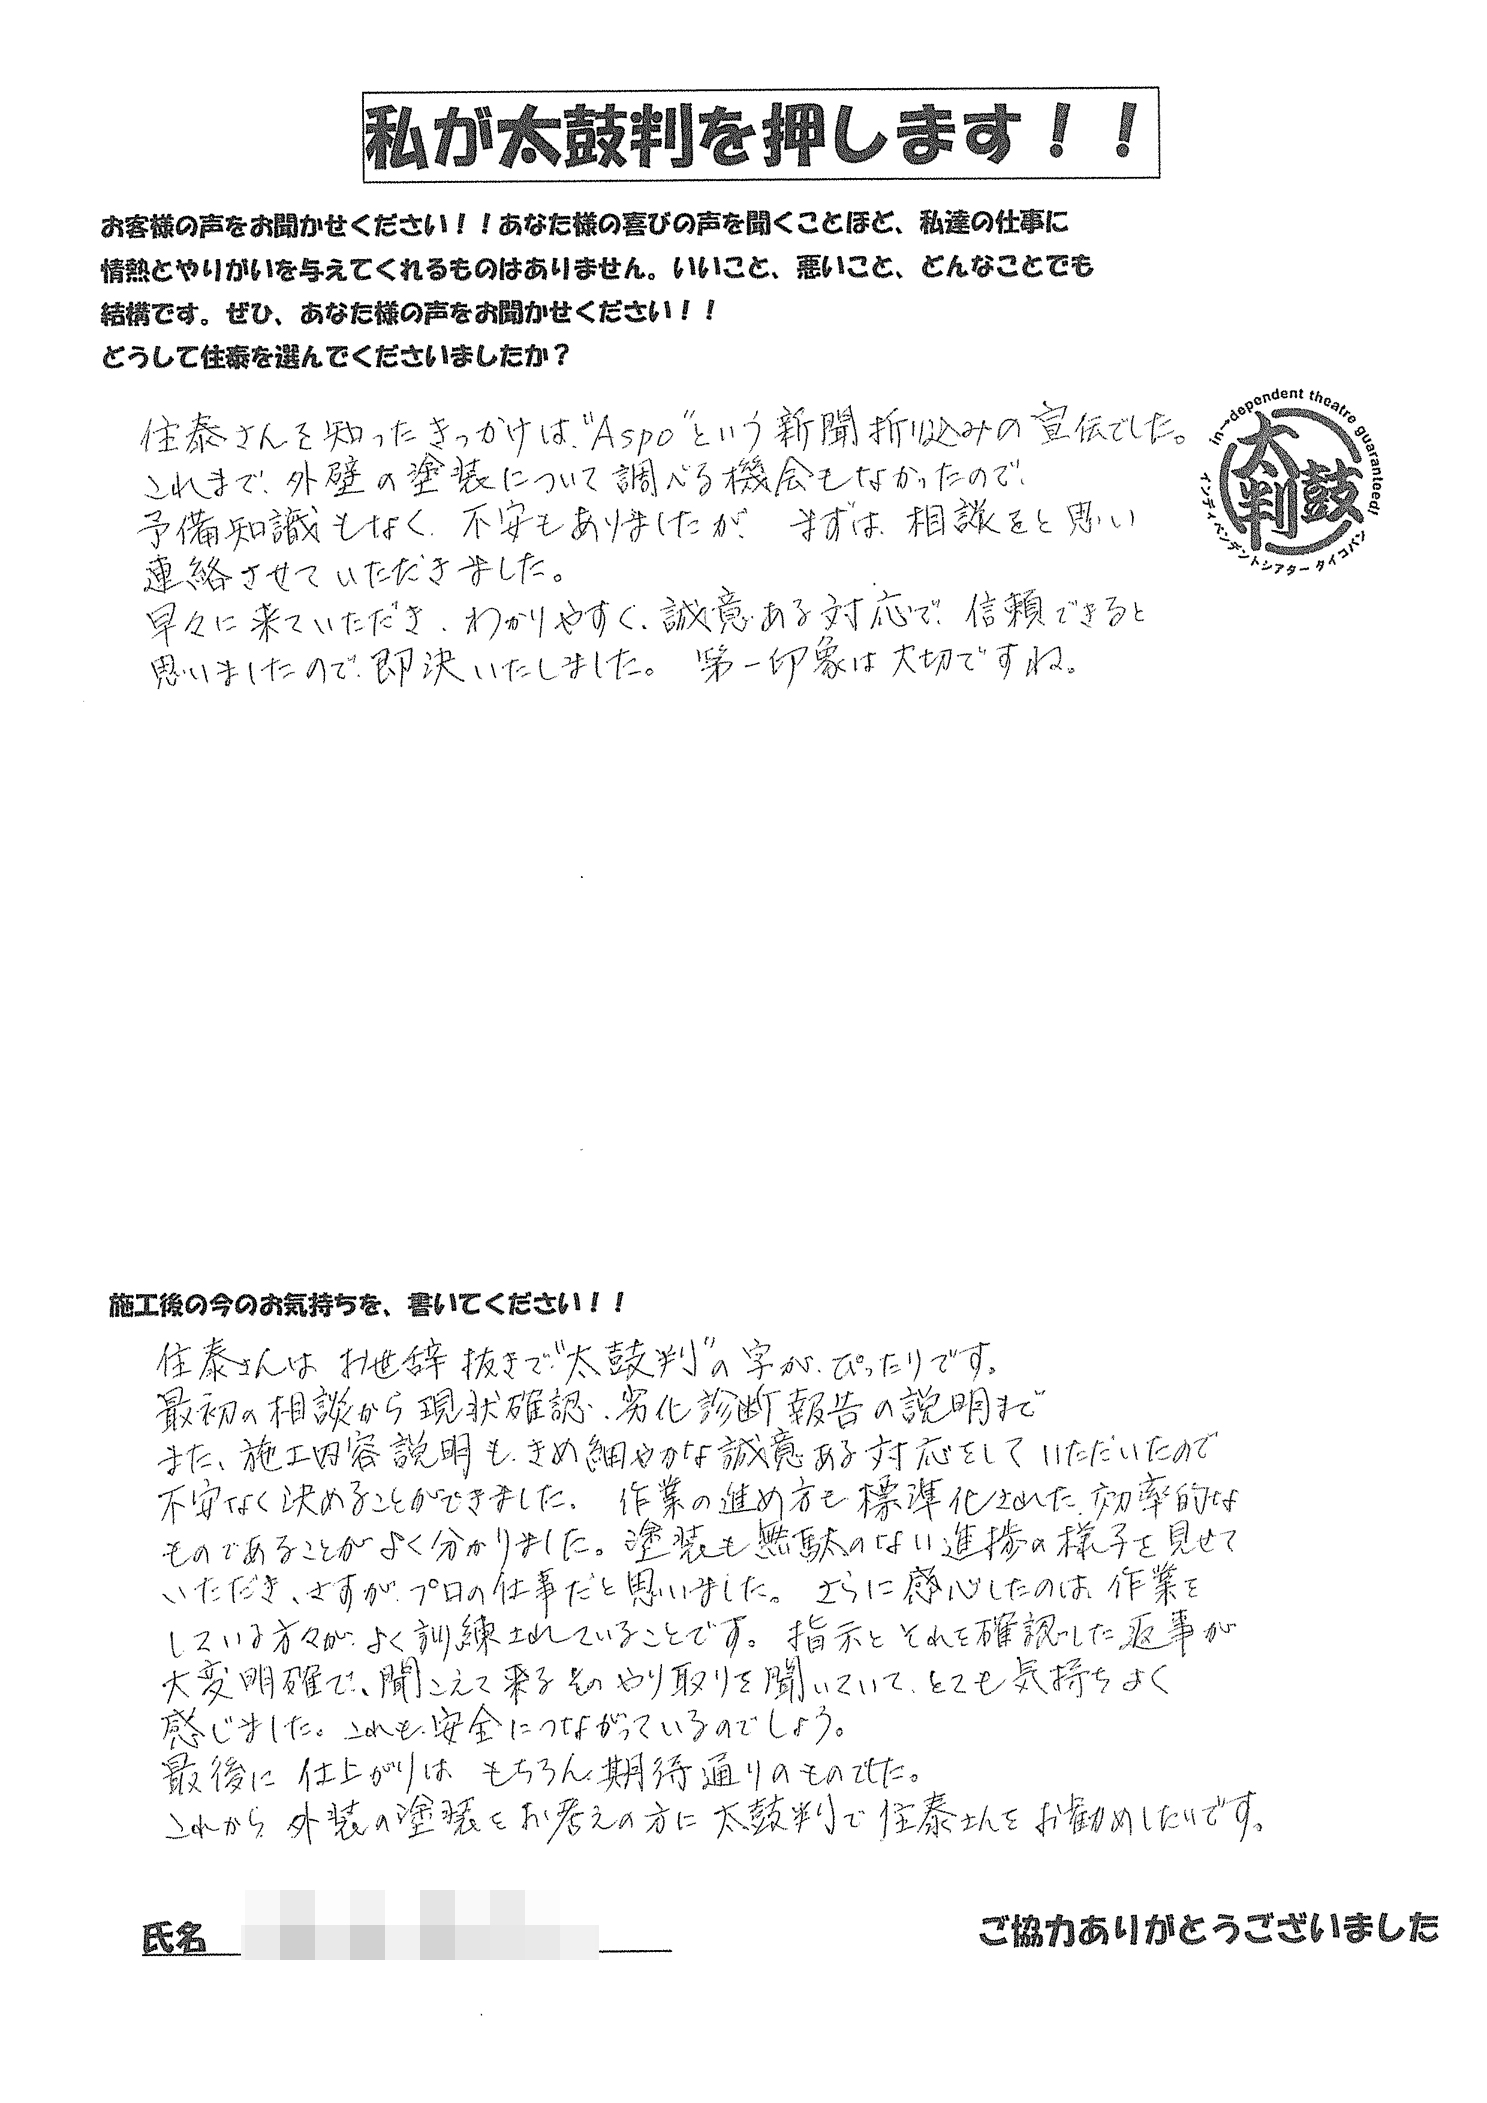 私が太鼓判を押します！！
お客様の声をお聞かせください！！あなた様の喜びの声を聞くことほど、私達の仕事に
情熱とやりがいを与えてくれるものはありません。いいこと、悪いこと、どんなことでも
結構です。ぜひ、あなた様の声をお聞かせください！！
どうして住泰を選んでくださいましたか？
住泰さんを知ったきっかけは、"Aspo"という新聞折り込みの宣伝でした。
これまで、外壁の塗装について調べる機会もなかったので、
予備知識もなく、不安もありましたが、まずは、相談をと思い
連絡させていただきました。
早々に来ていただき、わかりやすく、誠意ある対応で、信頼できると
思いましたので、即決いたしました。第一印象は大切ですね。
in→dependent theatre guaranteed!
太鼓判
インディペンデントシアター タイコバン
施工後の今のお気持ちを、書いてください！！
住泰さんは お世辞抜きで"太鼓判"の字が、ぴったりです。
最初の相談から現状確認、劣化診断報告の説明まで
また、施工内容説明も、きめ細やかな誠意ある対応をしていただいたので
不安なく決めることができました。作業の進め方も標準化された、効率的な
ものであることがよく分かりました。塗装も無駄のない進捗の様子を見せて
いただき、さすが、プロの仕事だと思いました。さらに感心したのは、作業を
している方々が、よく訓練されていることです。指示とそれを確認した返事が
大変明確で、聞こえて来るそのやり取りを聞いていて、とても気持ちよく
感じました。これも、安全につながっているのでしょう。
最後に 仕上がりは もちろん、期待通りのものでした。
これから、外装の塗装をお考えの方に 太鼓判で 住泰さんを お勧めしたいです。
氏名
ご協力ありがとうございました